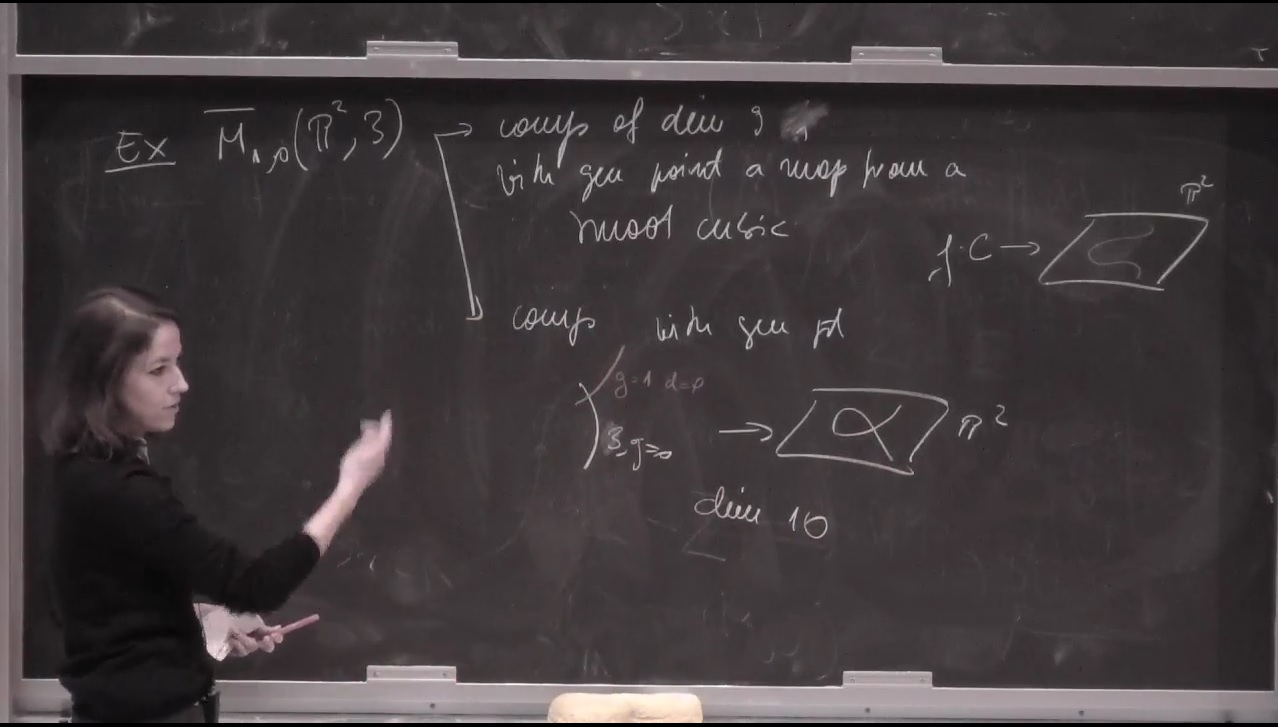 Ex M̅₁,₀(ℙ², 3) → comp of dim 9
with gen point a map from a
smooth cubic
f: C → ℙ²
comp with gen pt
g=1 d=0
3, g=0 → ℙ²
dim 10